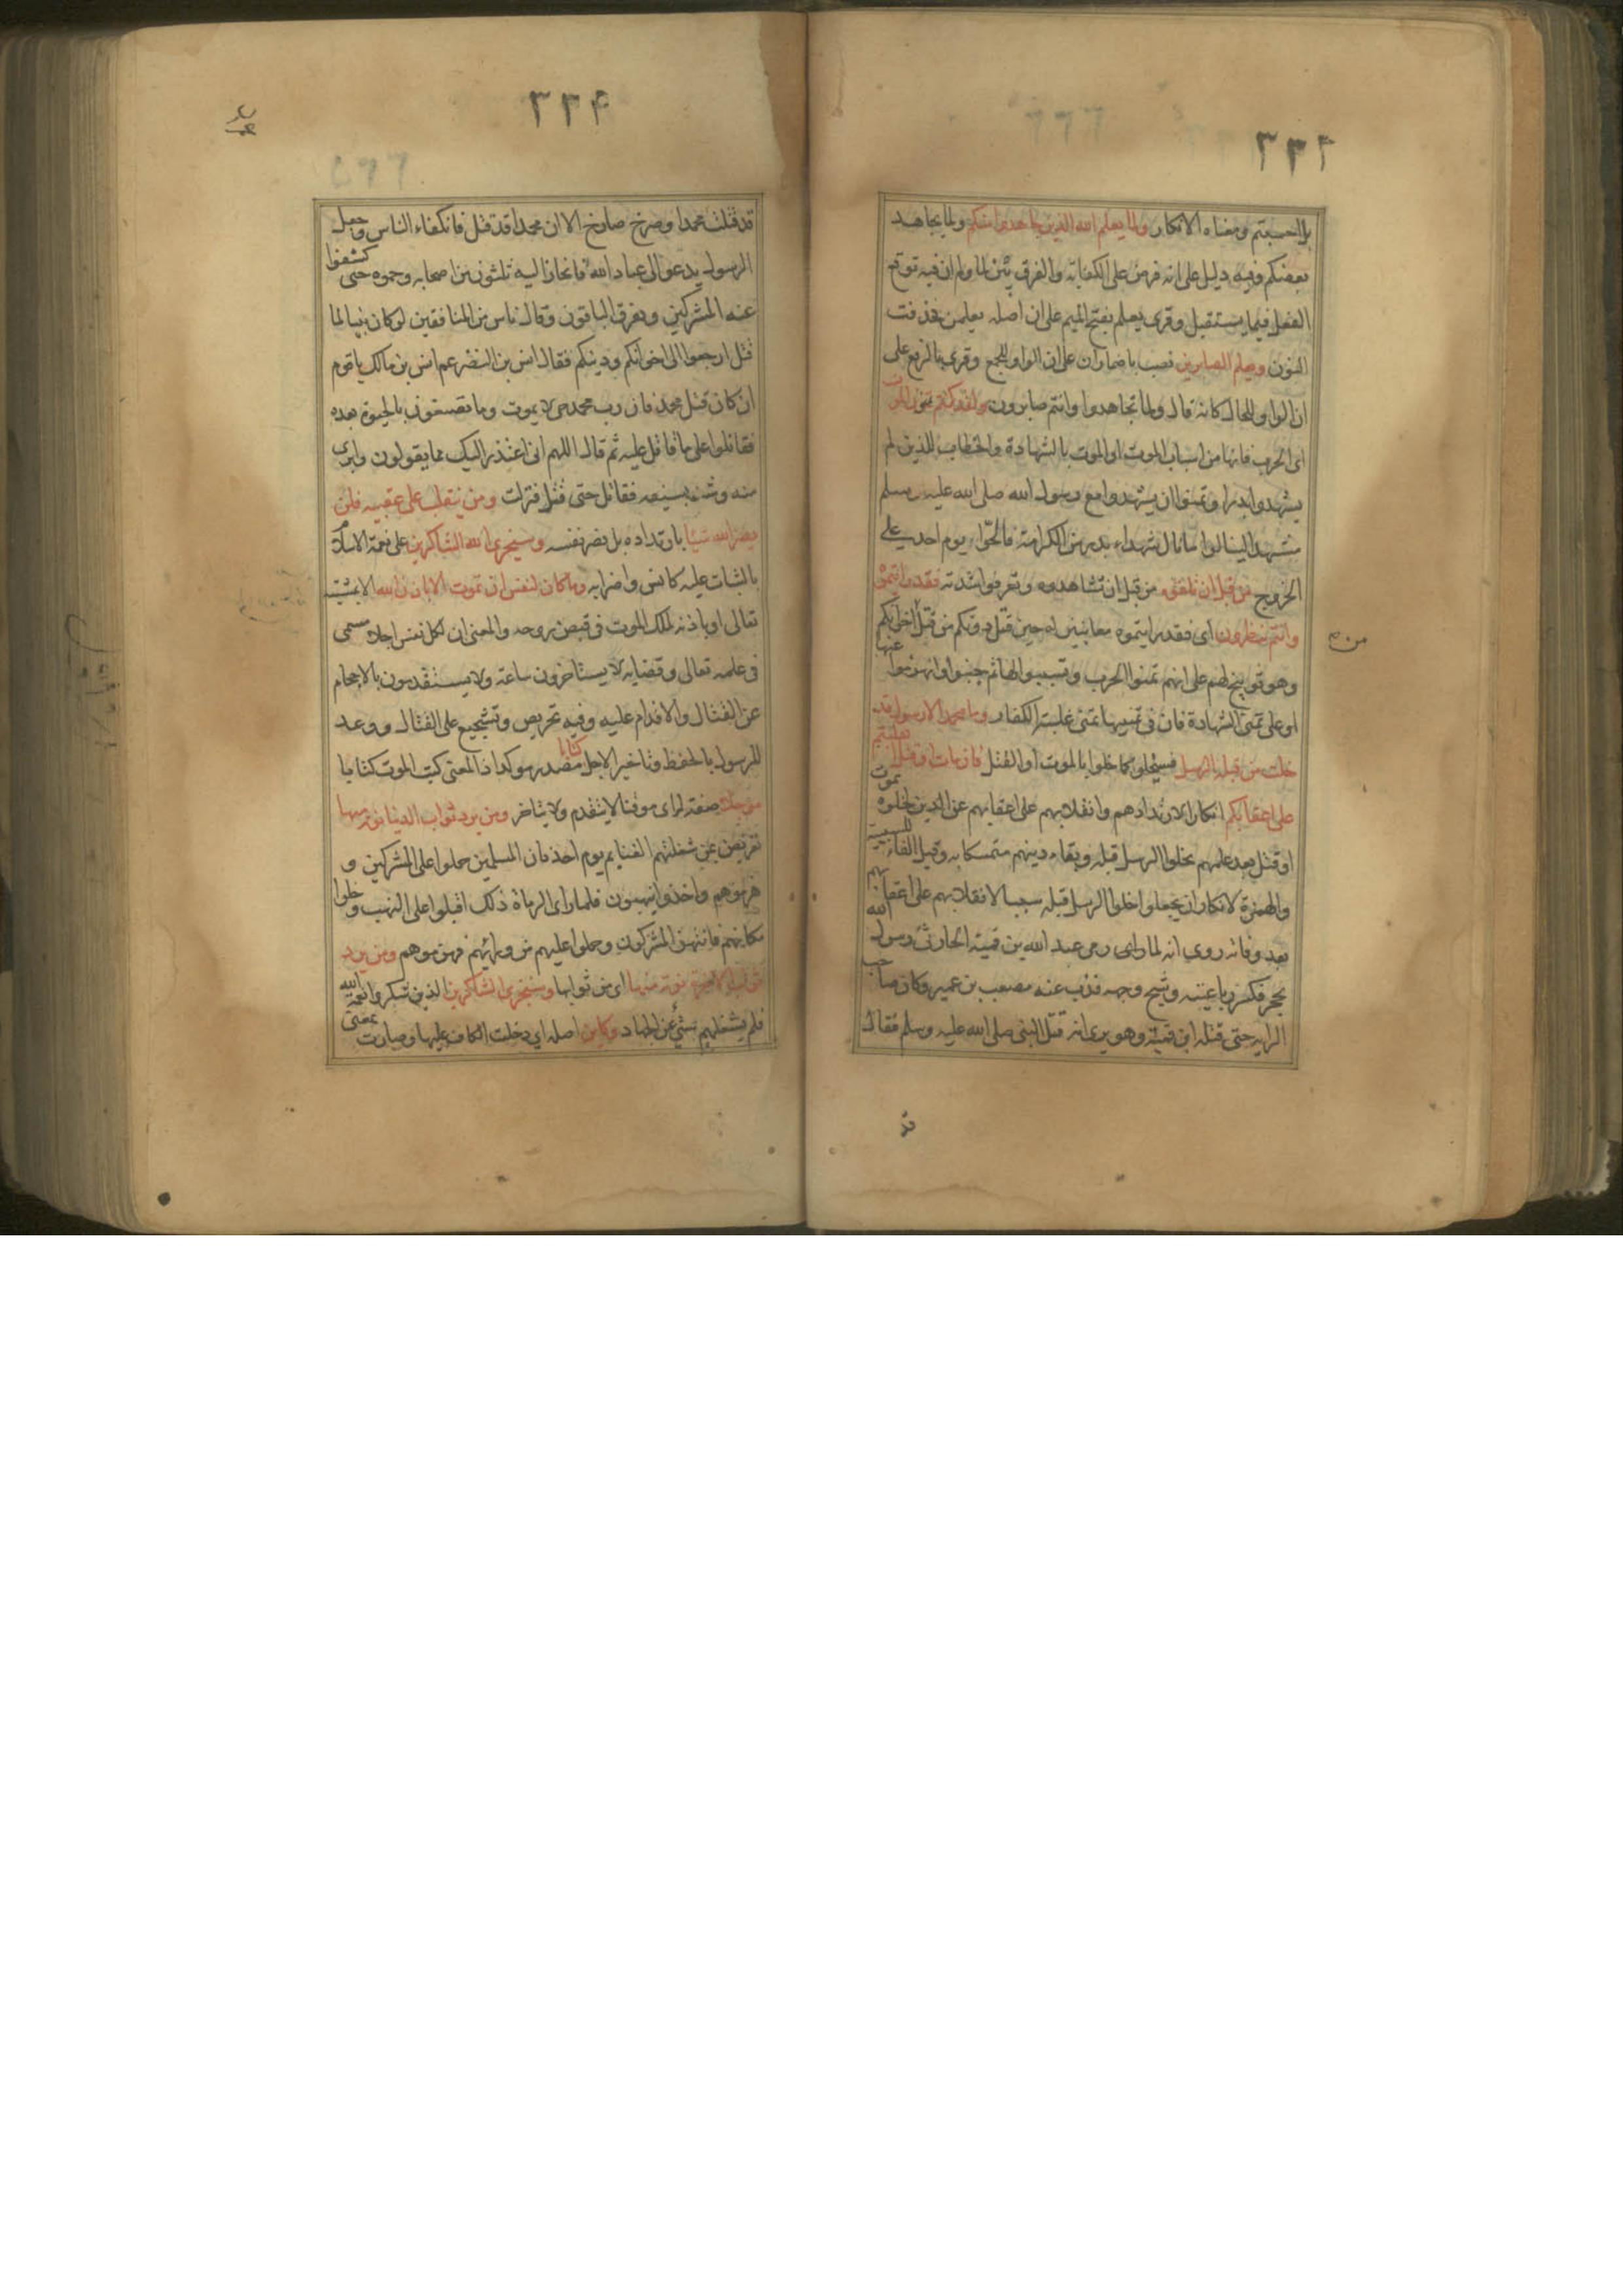 ٢٣٤
بل احسبتم ومعناه الانكار ولما يعلم الله الذين جاهدوا منكم ولما يجاهد
بعضكم وفيه دليل على انه فرض على الكفاية والفرق بين لما ولم ان فيه توقع
الفعل فيما يستقبل وقرئ يعلم بفتح الميم على ان اصله يعلمن فحذفت
النون ويعلم الصابرين نصب باضمار ان على ان الواو للجمع وقرئ بالرفع على
ان الواو للحال كانه قال ولما تجاهدوا وانتم صابرون ولقد كنتم تمنون الموت
اى الحرب فانها من اسباب الموت او الموت بالشهادة والخطاب للذين لم
يشهدوا بدرا وتمنوا ان يشهدوا مع رسول الله صلى الله عليه وسلم
مشهدا لينالوا ما نال شهداء بدر من الكرامة فالحوا يوم احد على
الخروج من قبل ان تلقوه من قبل ان تشاهدوه وتعرفوا شدته فقد رايتموه
وانتم تنظرون اى فقد رايتموه معاينين له حين قتل دونكم من قتل اخوانكم
من م
وهو توبيخ لهم على انهم تمنوا الحرب وتسببوا لها ثم جبنوا وانهزموا عنها
او على تمنى الشهادة فان فى تمنيها تمنى غلبة الكفار وما محمد الا رسول قد
خلت من قبله الرسل فسيخلو كما خلوا بالموت او القتل فان مات او قتل انقلبتم
على اعقابكم انكار لارتدادهم وانقلابهم على اعقابهم عن الدين لخلوه بموت
او قتل بعد علمهم بخلو الرسل قبله وبقاء دينهم متمسكا به وقيل الفاء للسببية
والهمزة لانكار ان يجعلوا خلو الرسل قبله سببا لانقلابهم على اعقابهم
بعد وفاته روى انه لما رمى عبد الله بن قمية الحارثى رسول الله
بحجر فكسر رباعيته وشج وجهه فذب عنه مصعب بن عمير وكان صاحب
الراية حتى قتله ابن قمية وهو يرى انه قتل النبى صلى الله عليه وسلم فقال
قد
٢٣٤
قد قتلت محمدا وصرخ صارخ الا ان محمدا قد قتل فانكفاء الناس وجعل
الرسول يدعو الى عباد الله فانحاز اليه ثلثون من اصحابه وحموه حتى كشفوا
عنه المشركين وتفرق الباقون وقال ناس من المنافقين لو كان نبيا لما
قتل ارجعوا الى اخوانكم ودينكم فقال انس بن النضر عم انس بن مالك يا قوم
ان كان قتل محمد فان رب محمد حى لا يموت وما تصنعون بالحيوة بعده
فقاتلوا على ما قاتل عليه ثم قال اللهم انى اعتذر اليك مما يقولون وابرئ
منه وشد بسيفه فقاتل حتى قتل فنزلت ومن ينقلب على عقبيه فلن
يضر الله شيئا بارتداده بل يضر نفسه وسيجزى الله الشاكرين على نعمة الاسلام
بالثبات عليه كانس واضرابه وما كان لنفس ان تموت الا باذن الله الا بمشيته
تعالى او باذنه لملك الموت فى قبض روحه والمعنى ان لكل نفس اجلا مسمى
فى علمه تعالى وقضايه لا يستاخرون ساعة ولا يستقدمون بالاحجام
عن القتال والاقدام عليه وفيه تحريص وتشجيع على القتال ووعد
للرسول بالحفظ وتاخير الاجل كتابا مصدر موكد اذ المعنى كتب الموت كتابا
موجلا صفة له اى موقتا لا يتقدم ولا يتاخر ومن يرد ثواب الدنيا نوته منها
تعريض بمن شغلتهم الغنايم يوم احد فان المسلمين حملوا على المشركين و
هزموهم واخذوا ينهبون فلما راى الرماة ذلك اقبلوا على النهب وخلوا
مكانهم فانتهز المشركون وحملوا عليهم من ورائهم فهزموهم ومن يرد
ثواب الاخرة نوته منها اى من ثوابها وسنجزى الشاكرين الذين شكروا نعمة الله
فلم يشغلهم شئ عن الجهاد وكاين اصله اى دخلت الكاف عليها وصارت بمعنى